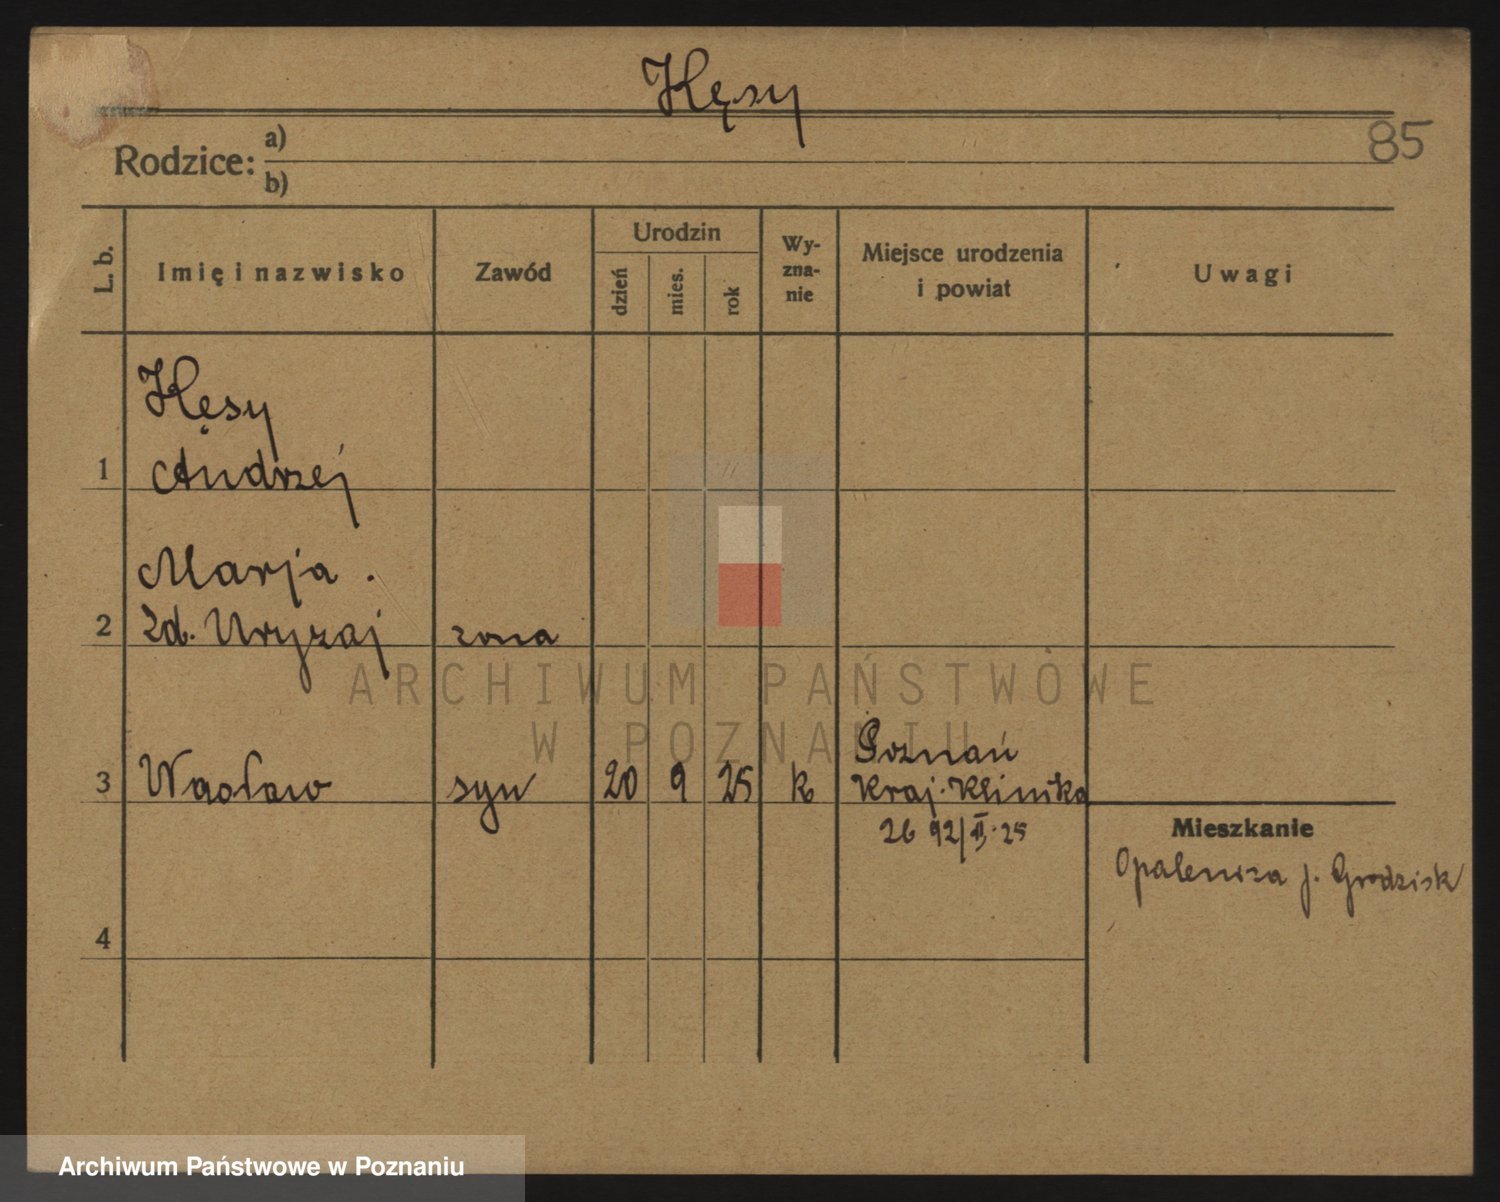 Kęsy
85
Rodzice: a)
b)
L. b.
Imię i nazwisko
Zawód
Urodzin
dzień
mies.
rok
Wy-
zna-
nie
Miejsce urodzenia
i powiat
Uwagi
Kęsy
1 Andrzej
Marja .
2 zd. Uryzaj żona
Poznań
3 Wacław syn 20 9 25 k Kraj. Klinika
26 92/II. 25
Mieszkanie
Opalenica p. Grodzisk
4
ARCHIWUM PAŃSTWOWE
W POZNANIU
Archiwum Państwowe w Poznaniu